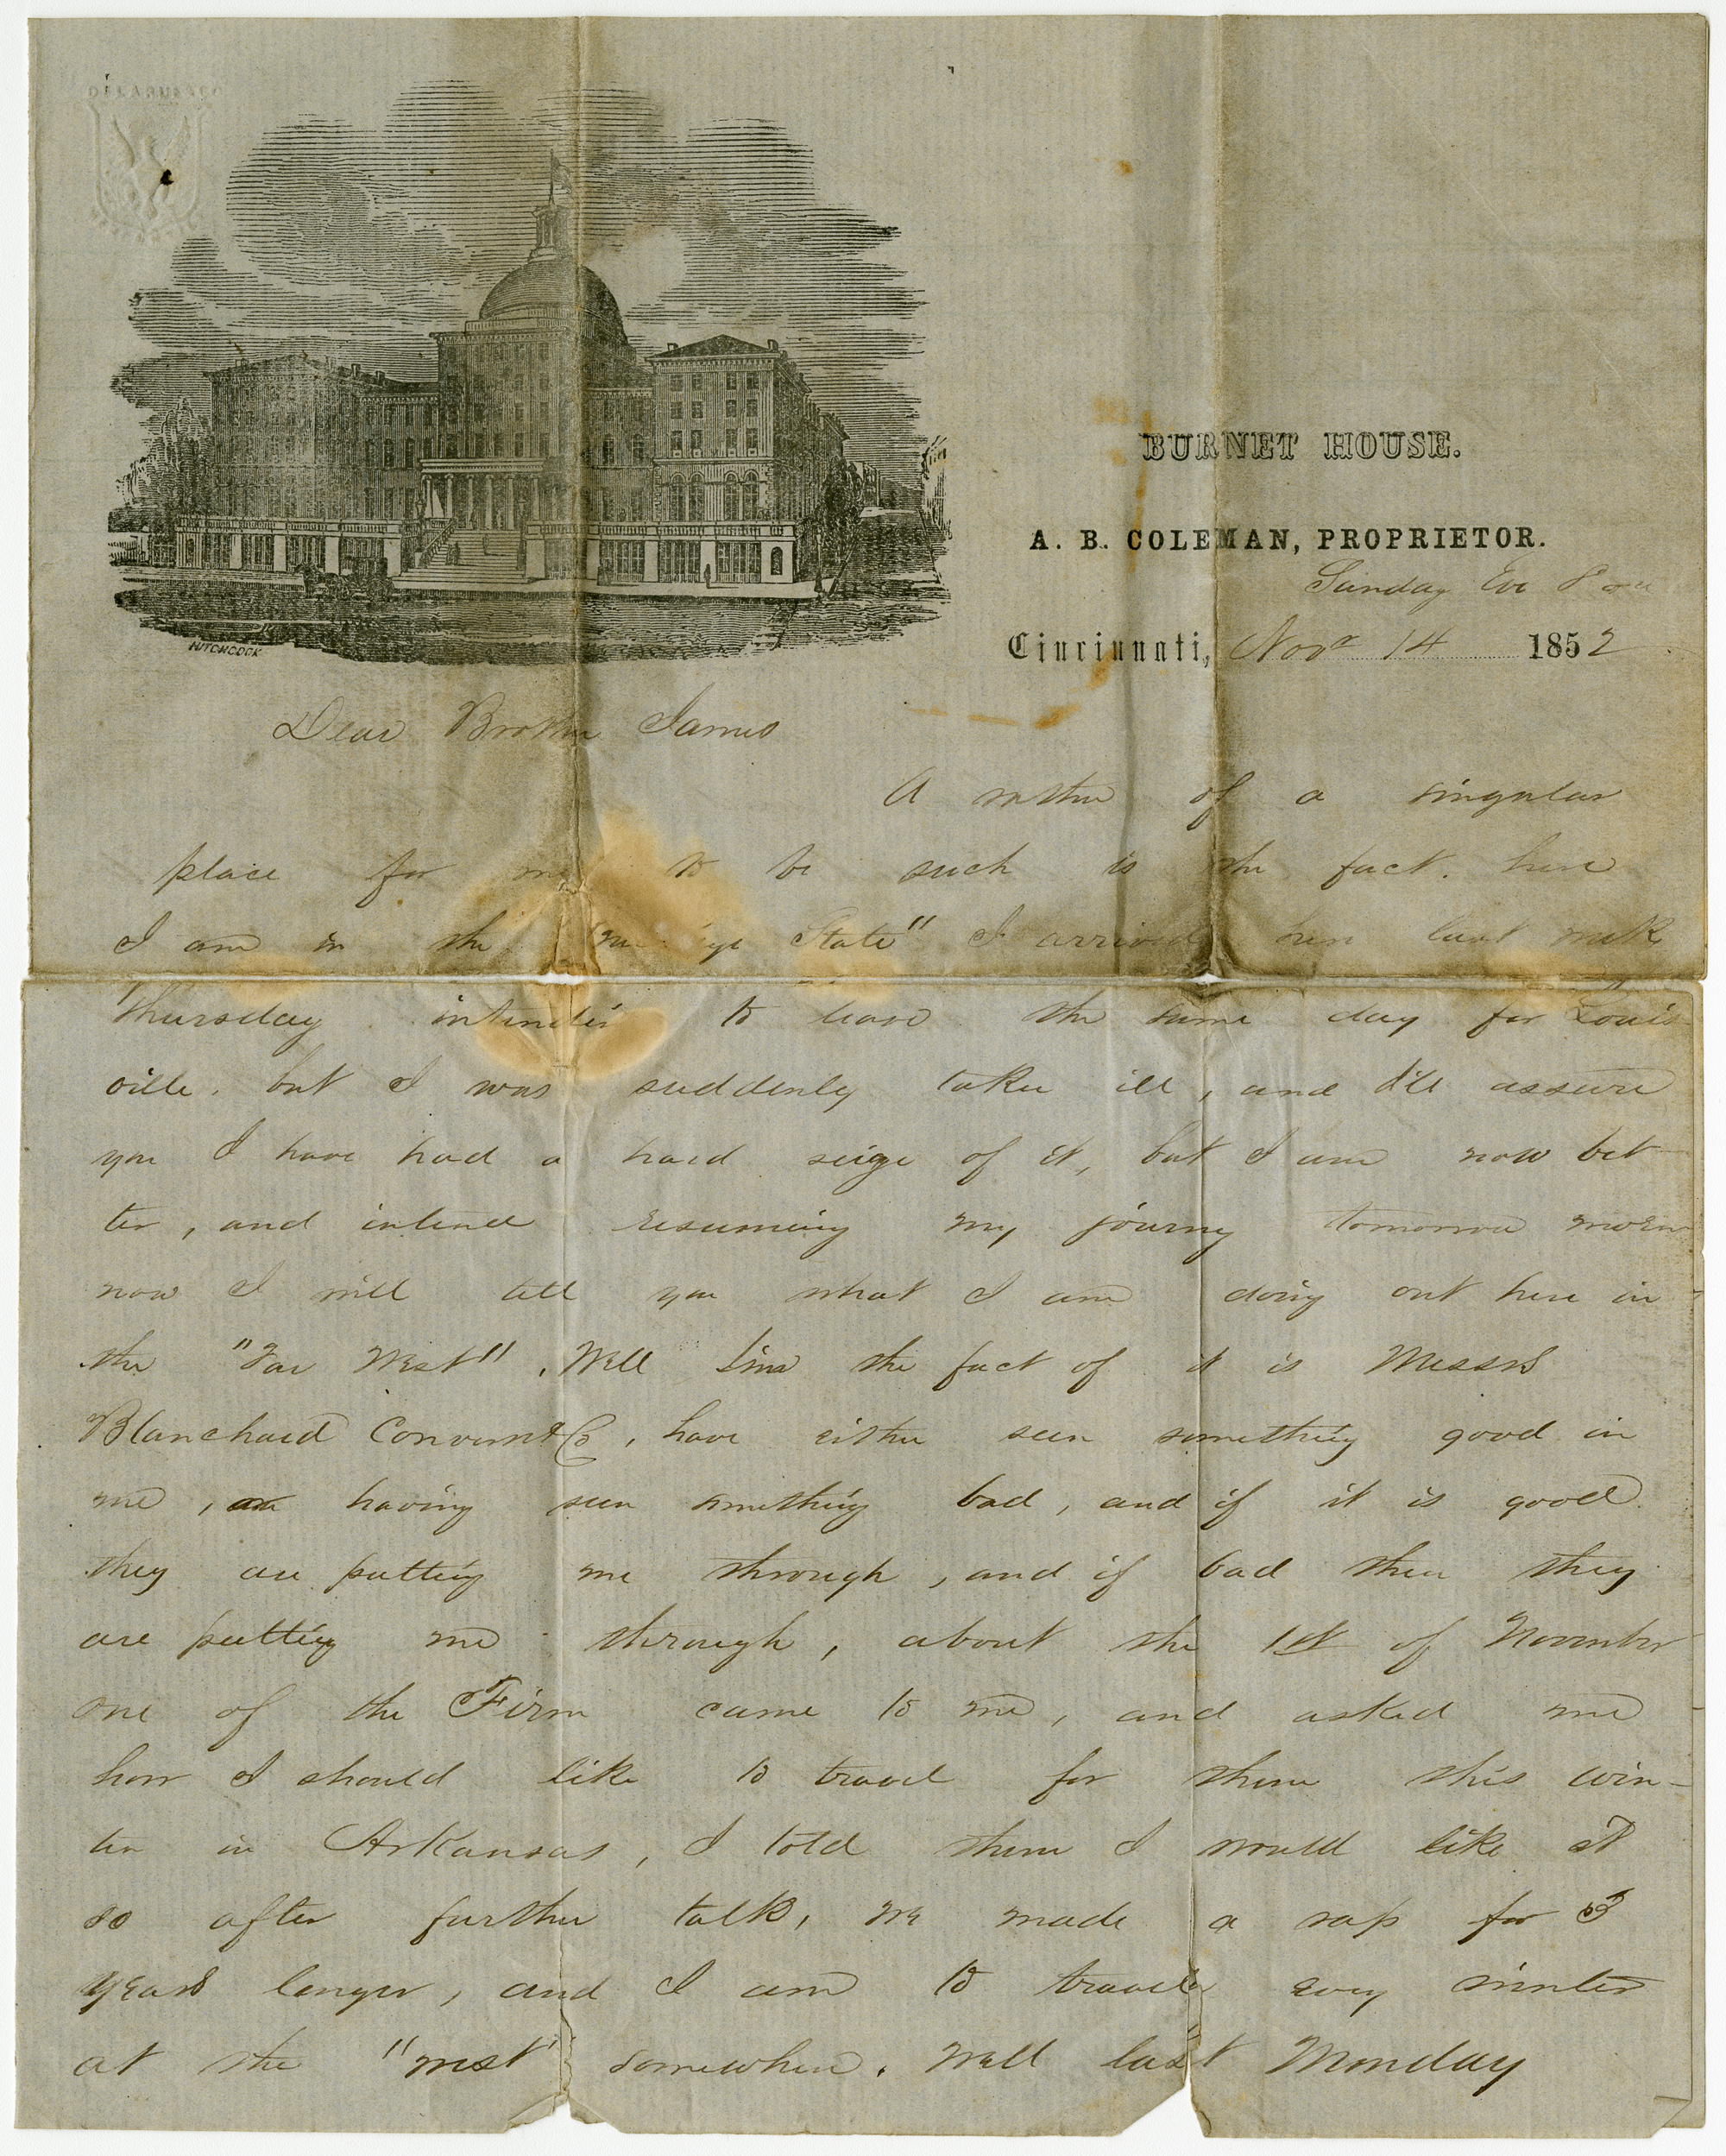 DELARUE & CO
HITCHCOCK
BURNET HOUSE.
A. B. COLEMAN, PROPRIETOR.
Sunday Eve 8
Cincinnati, Novr 14 1852
Dear Brother James
A rather of a singular
place for me to be such is the fact. here
I am in the State" I arrived here last week
Thursday intending to leave the same day for Louis
ville. but I was suddenly taken ill, and I'll assure
you I have had a hard seige of it, but I am now bet
ter, and intend resuming my journy tomorrow morn
now I will tell you what I am doing out here in
the "Far West". Well Jim the fact of it is Messrs
Blanchard Converse & Co, have either seen something good in
me, or having seen something bad, and if it is good
they are putting me through, and if bad then they
are putting me through, about the 1st of November
one of the Firm came to me, and asked me
how I should like to travel for them this win-
ter in Arkansas, I told them I would like it
so after further talk, we made a rap for 3
years longer, and I am to travel every winter
at the "west" somewhere. Well last Monday